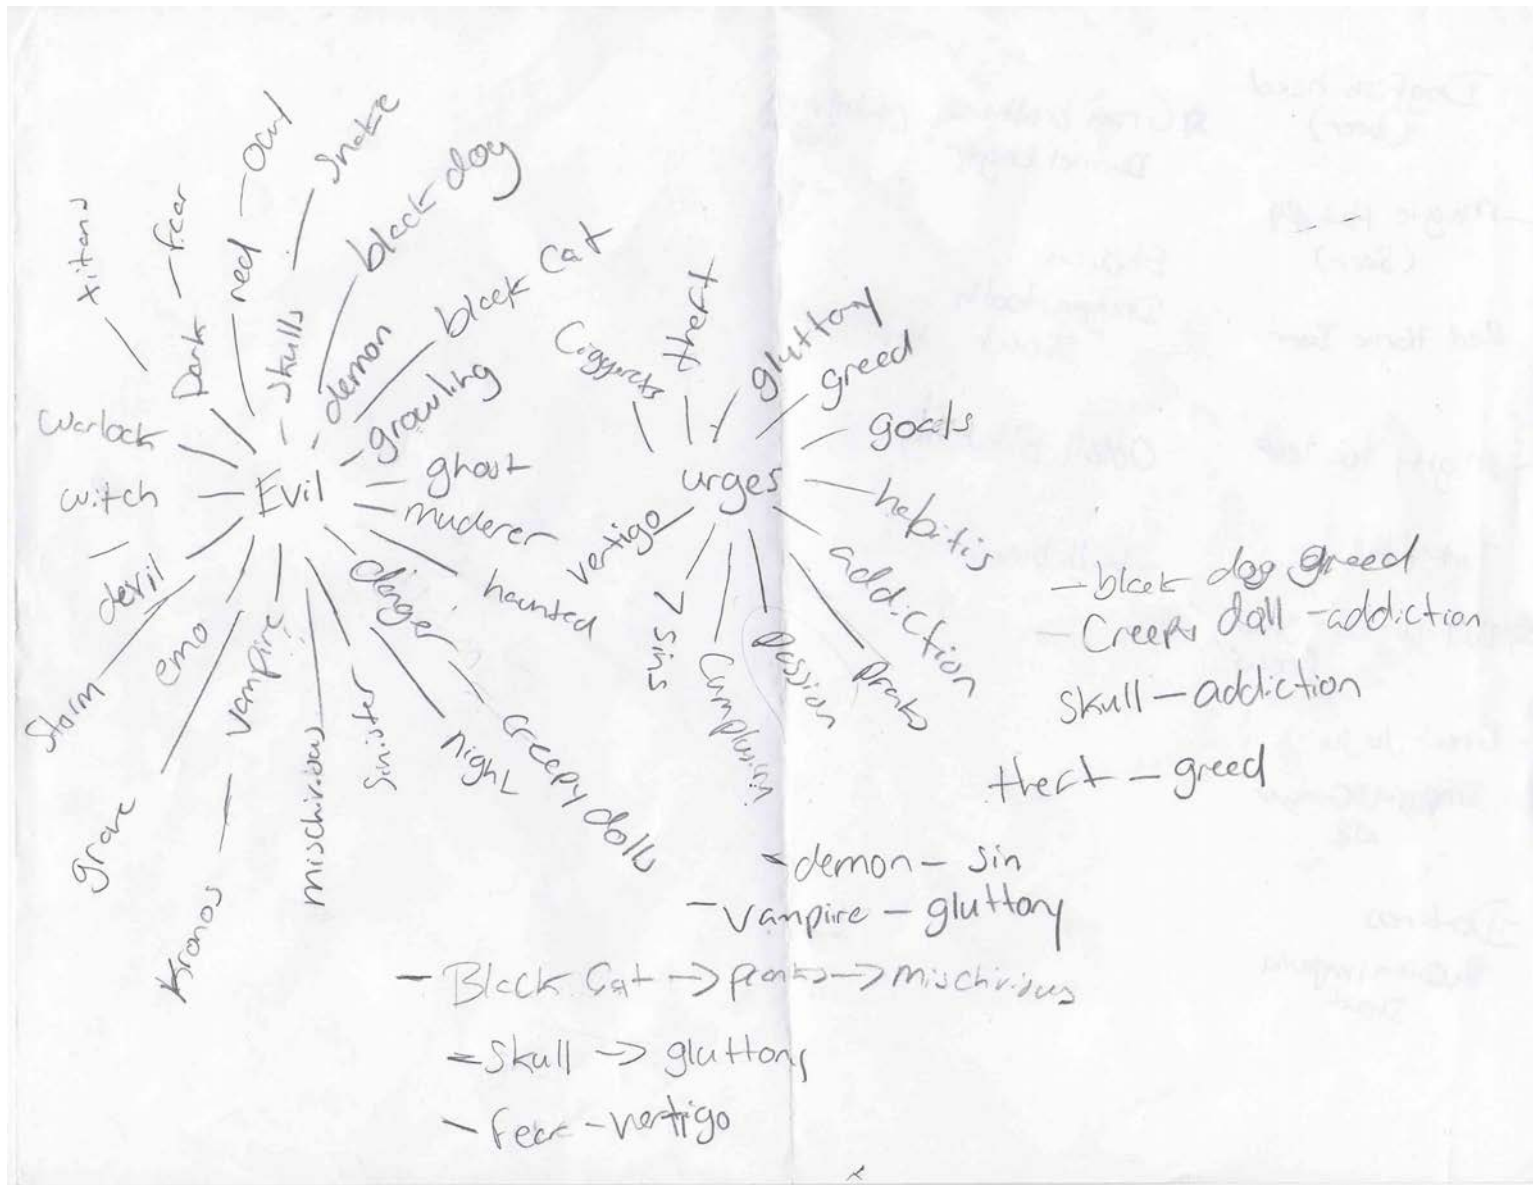 titans
fear
Dark
red
owl
skulls
snake
black dog
demon
black cat
growling
ghost
muderer
haunted
danger
creepy dolls
night
sinister
mischirious
vampire
Kronos
emo
grave
storm
devil
witch
warlock
Evil
Ciggarets
theft
gluttony
greed
goals
habitis
addiction
pranks
passion
7 sins
vertigo
urges
- black dog greed
- Creepy doll - addiction
Skull - addiction
theft - greed
- demon - sin
- vampire - gluttony
- Black Cat -> pranks -> mischirious
- Skull -> gluttony
- fear - vertigo